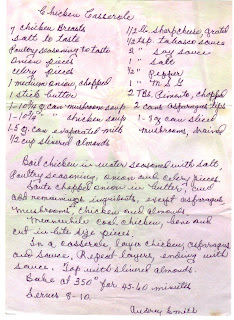 Chicken Casserole
7 chicken breasts
Salt to taste
Poultry seasoning to taste
Onion pieces
Celery pieces
1 medium onion, chopped
1 stick butter
1-10¾ oz. can mushroom soup
1-10¾ " " chicken soup
1-5 oz. can evaporated milk
1/2 cup slivered almonds
1/2 lb. sharp cheese grated
1/2 tsp Tabasco sauce
2 " Soy sauce
1 " Salt
½ " Pepper
1 " M S G
2 TBS. Pimento, chopped
2 cans asparagus tips
1- 8 oz can sliced
mushrooms, drained
Boil chicken in water seasoned with salt,
Poultry seasoning, onion and celery pieces.
Saute chopped onion in butter, and
add remaining ingredients, except asparagus
mushrooms, chicken and almonds.
Meanwhile cook chicken, bone and
cut in bite size pieces.
In a casserole, layer chicken, asparagus
and sauce. Repeat layers, ending with
sauce. Top with slivered almonds.
Bake at 350° for 45-60 minutes
Serves 8-10.
Audrey Smith